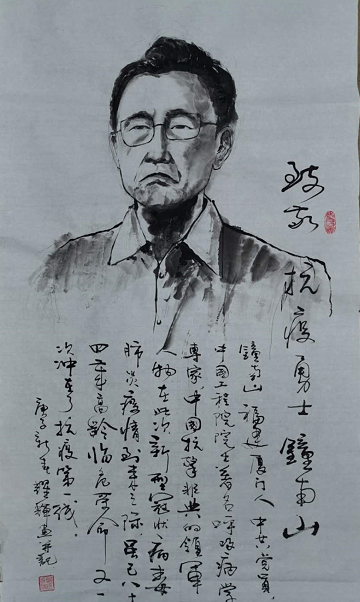 致敬
抗疫勇士鐘南山
鐘南山 福建厦门人 中共党员
中国工程院院士著名呼吸病学
專家 中国抗擊非典的領軍
人物在此次新型冠状病毒
肺炎疫情到来之际 虽已八十
四岁高龄临危受命又一
次冲到了抗疫第一线。
庚子新春